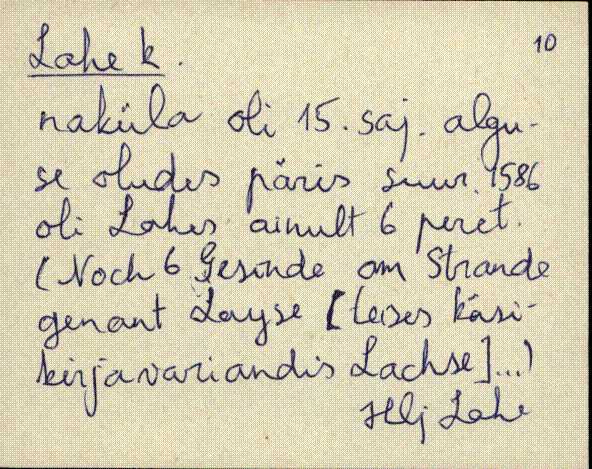 10
Lahe k.
naküla oli 15. saj. algu-
se oludes päris suur. 1586
oli Lahes ainult 6 peret.
(Noch 6 Gesinde am Strande
genant Layse [teises käsi-
kirjavariandis Lachse]...)
Hlj Lahe